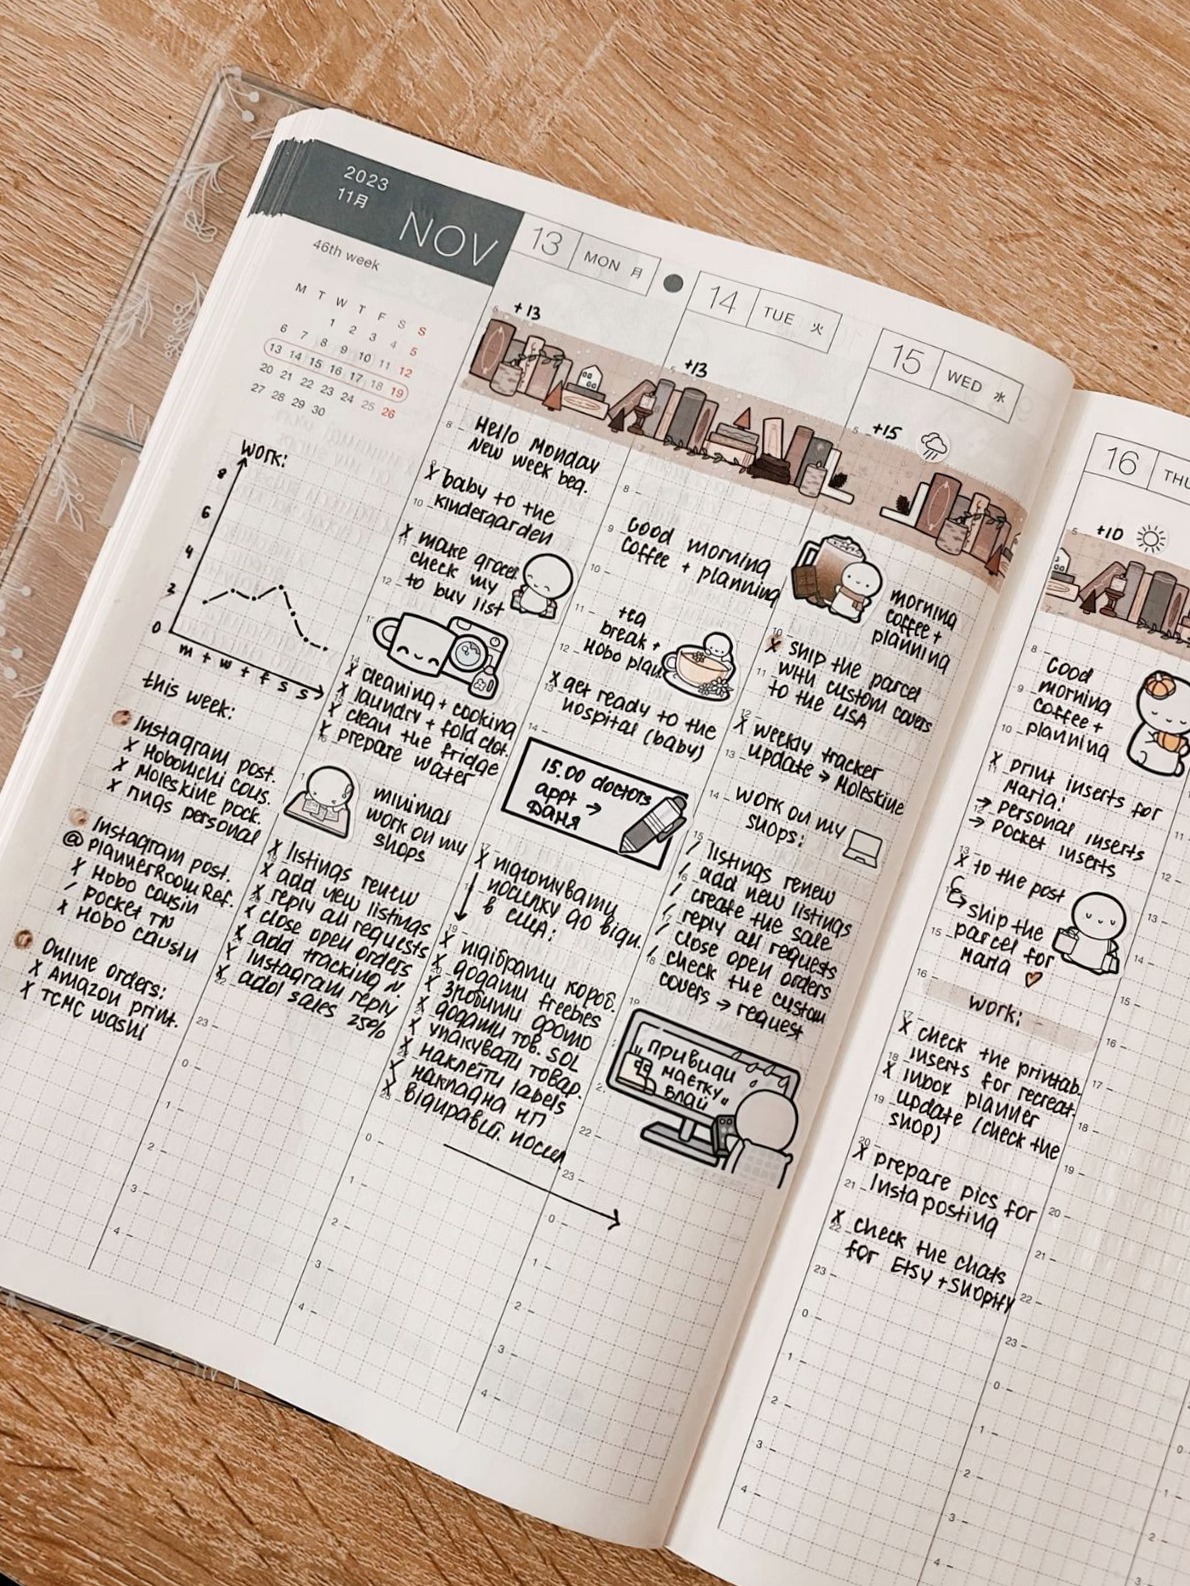 2023
11月
NOV
46th week
M T W T F S S
1 2 3 4 5
6 7 8 9 10 11 12
13 14 15 16 17 18 19
20 21 22 23 24 25 26
27 28 29 30
work:
8
6
4
3
0
m t w t f s s
this week:
Instagram post.
x Hobonichi cous.
x Moleskine pock.
x rings personal
Instagram post.
@plannerRoomRef.
x Hobo cousin
/ pocket TN
x Hobo cousin
Online orders:
x Amazon print.
x TCMC washi
13 MON 月
+13
Hello Monday
New week beg.
x baby to the
kindergarden
x make
check my
to buy list
x cleaning + cooking
x laundry + fold clot.
x clean the fridge
x prepare water
minimal
work on my
shops
x listings renew
x add new listings
x reply all requests
x close open orders
x add tracking N.
x Instagram reply
x add sales 25%
14 TUE 火
+13
Good morning
coffee + planning
tea
break +
Hobo plan
x get ready to the
hospital (baby)
15.00 doctors
appt →
Даня
x підготувати
посилку до відп.
в США:
x підібрати короб.
x додати freebies
x зробити фото
x додати тов. SOL
x упакувати товар.
x наклеїти labels
x накладна НП
x відправит. посил
15 WED 水
+15
morning
coffee +
planning
x ship the parcel
with custom covers
to the USA
x weekly tracker
update → Moleskine
work on my
shops:
/ listings renew
/ add new listings
/ create the sale
/ reply all requests
/ close open orders
/ check the custom
covers → request
"Привиди
маєтку
Блай"
16 THU
+10
Good
morning
coffee +
planning
x print inserts for
Maria:
→ personal inserts
→ pocket inserts
x to the post
→ ship the
parcel for
Maria
work:
x check the printab.
inserts for recreat.
x inbox planner
update (check the
shop)
x prepare pics for
Insta posting
x check the chats
for Etsy + Shopify